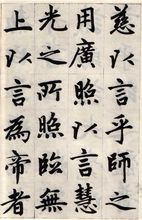 慈以言乎師之
用廣照以言慧
光之所照臨無
上以言為帝者